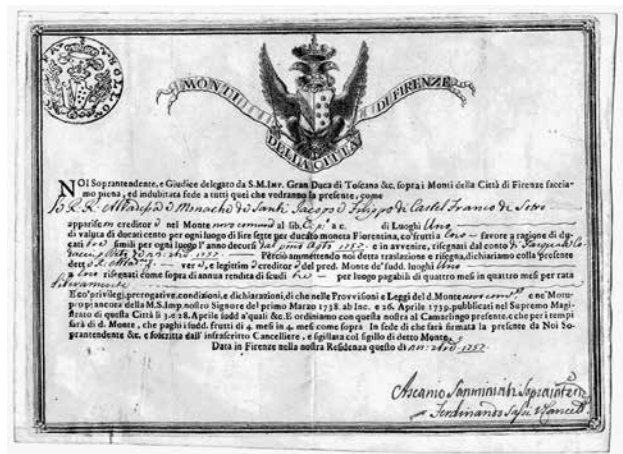 MONTI DELLA CITTA DI FIRENZE
NOI Soprantendente, e Giudice delegato da S.M.IMP. Gran Duca di Toscana &c. sopra i Monti della Città di Firenze faccia-
mo piena, ed indubitata fede a tutti quei che vedranno la presente, come
RR. Monache di Santi Jacopo e Filippo di Castel Franco di Sotto
apparisce creditor nel Monte al lib. a c. di Luoghi Uno
di valuta di ducati cento per ogni luogo di lire sette per ducato moneta Fiorentina, co' frutti a favore a ragione di du-
cati tre simili per ogni luogo l'anno decursi dal 1757 e in avvenire, risegnati dal conto di Pasquale
Perciò ammettendo noi detta traslazione e risegna, dichiariamo colla presente
dett ver , e legittim creditor del pred. Monte de' sudd. luoghi Uno
risegnati come sopra di annua rendita di scudi tre per luogo pagabili di quattro mesi in quattro mesi per rata

E co' privilegj, prerogative, condizioni, e dichiarazioni, di che nelle Provvisioni e Leggi del d. Monte e ne' Motu-
proprj ancora della M.S.Imp. nostro Signore del primo Marzo 1738 ab Inc. e 26. Aprile 1739. pubblicati nel Supremo Magi-
strato di questa Città li 3. e 28. Aprile sudd. a' quali &c. E ordiniamo con questa nostra al Camarlingo presente, e che per i tempi
sarà di d. Monte, che paghi i sudd. frutti di 4. mesi in 4. mesi come sopra In fede di che sarà firmata la presente da Noi So-
prantendente &c. e soscritta dall' infrascritto Cancelliere, e sigillata col sigillo di detto Monte.
Data in Firenze nella nostra Residenza questo di 1757
Ascanio Sanminiati
Ferdinando